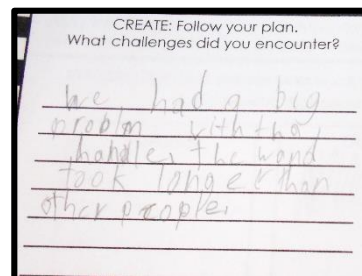 CREATE: Follow your plan.
What challenges did you encounter?
We had a big
problm with tha
handle, the wand
took longer than
other people.